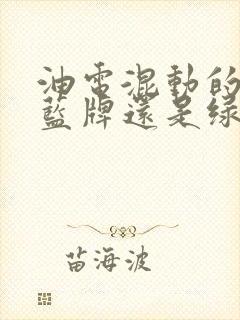 油電混動的
藍牌還是綠
苗海波